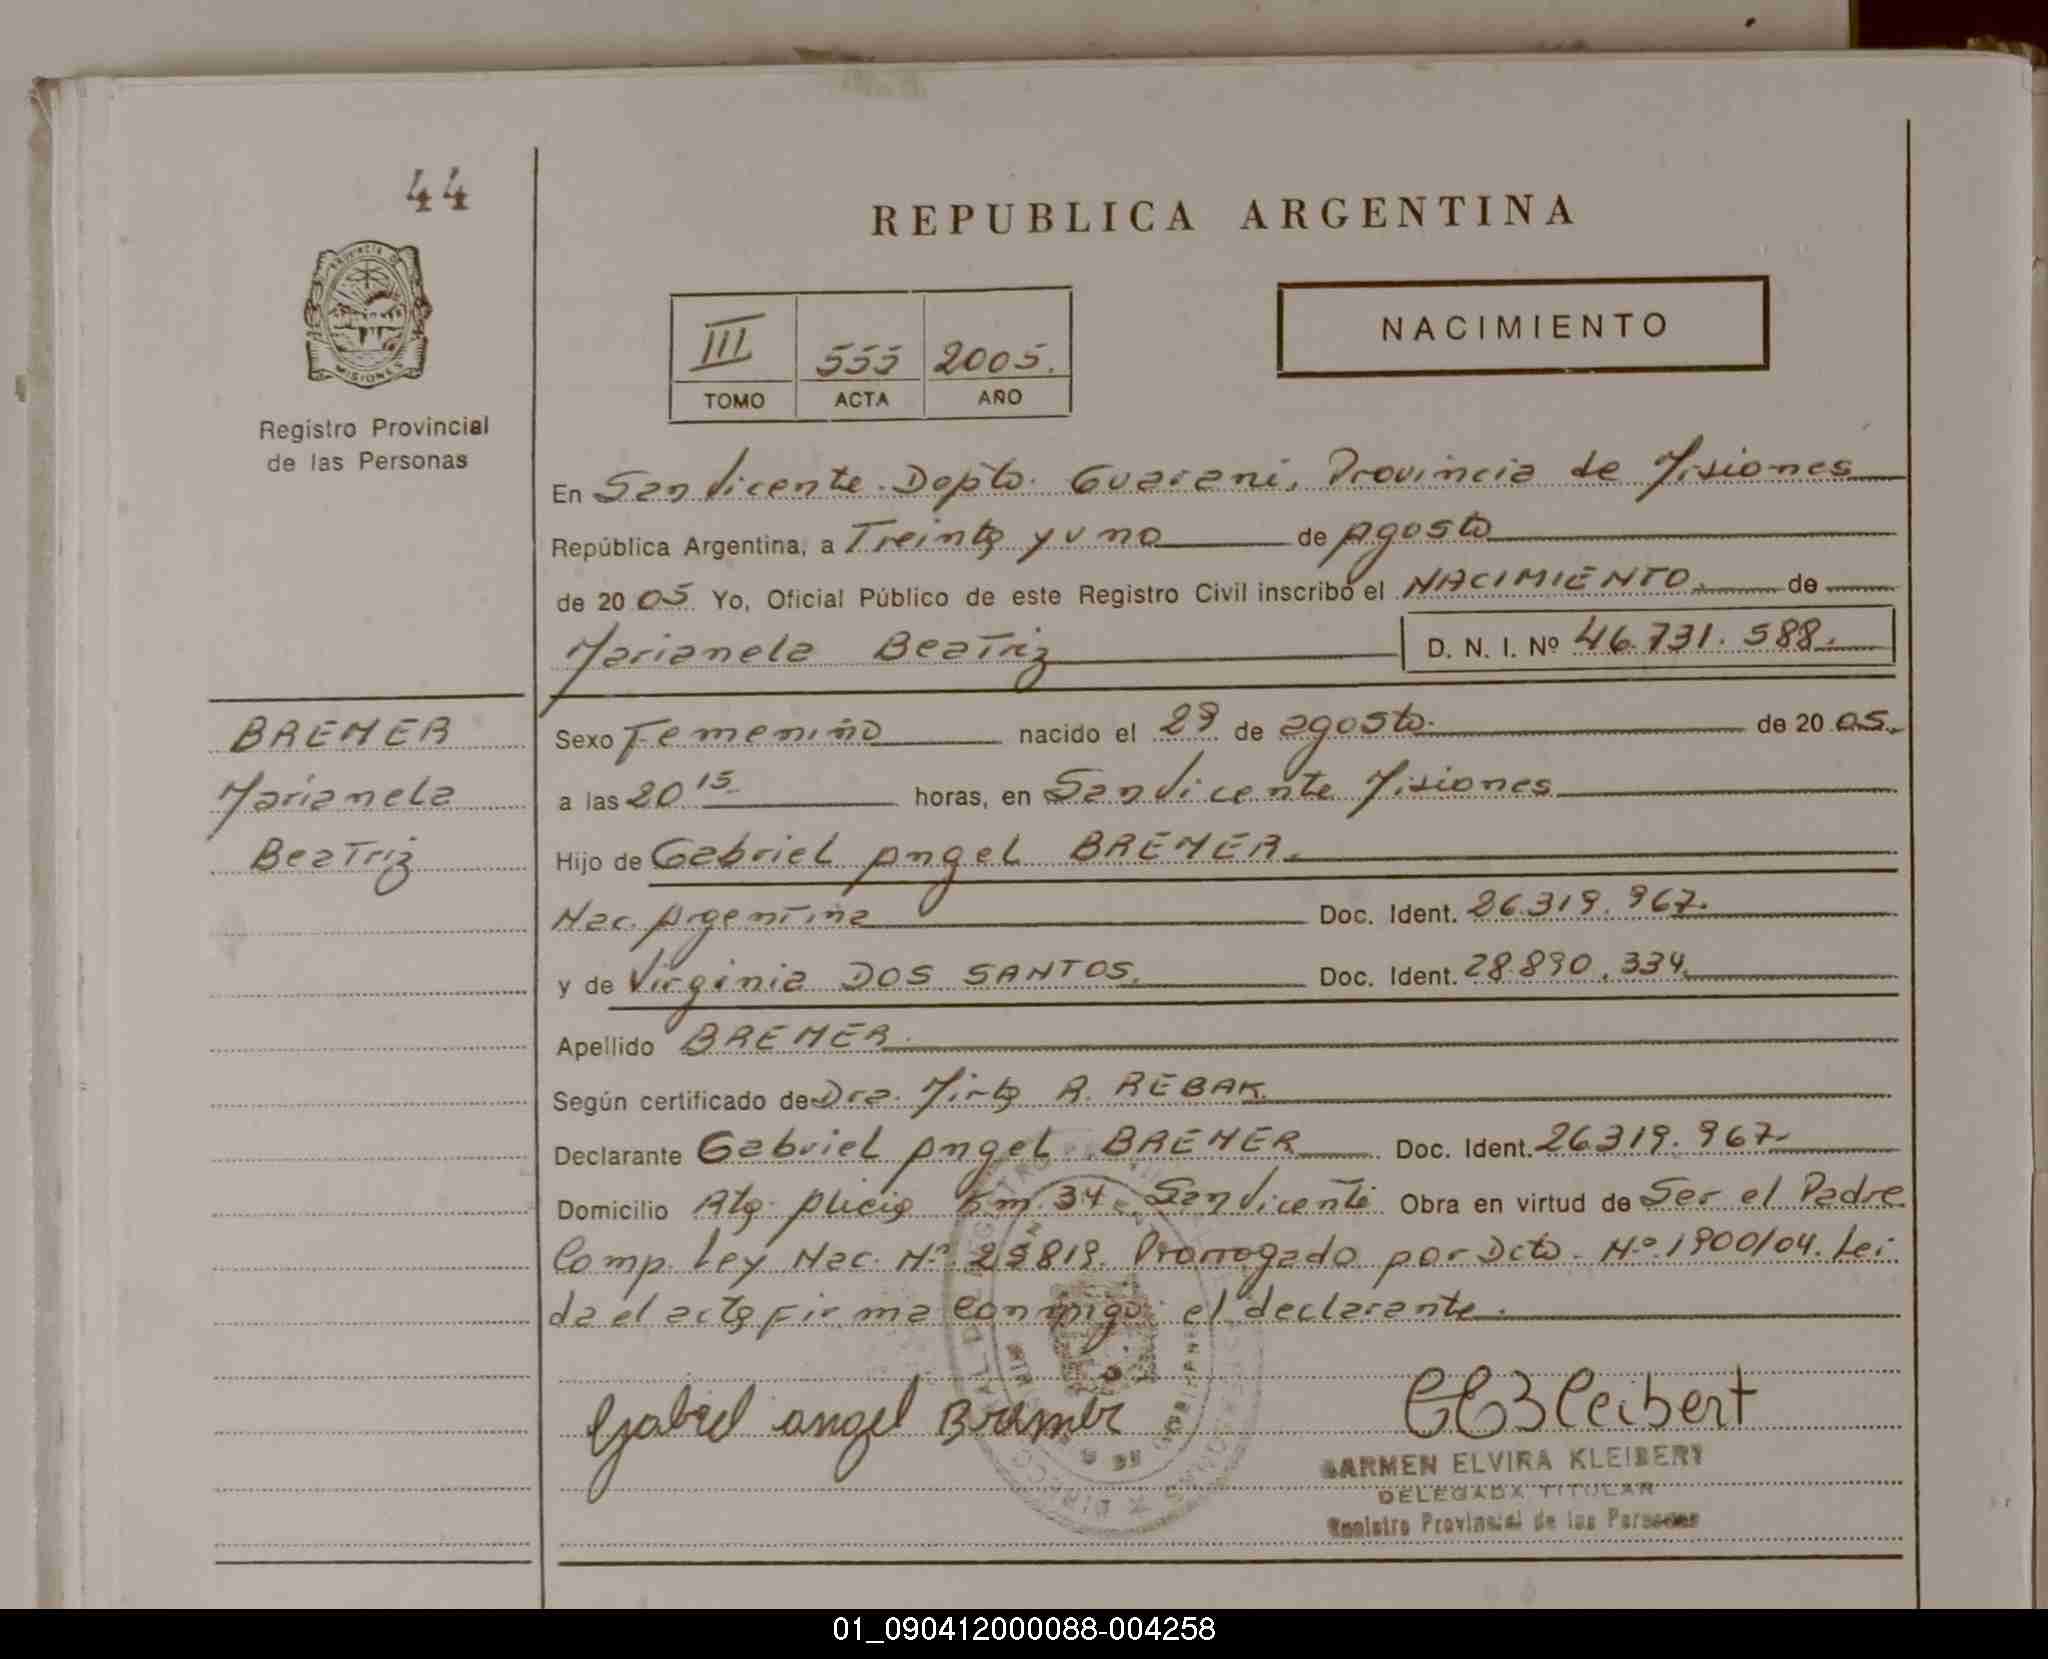 44
REPUBLICA ARGENTINA
PROVINCIA DE
MISIONES
Registro Provincial
de las Personas
III 555 2005.
TOMO ACTA AÑO
NACIMIENTO
En San Vicente. Dopto. Guarani, Provincia de Misiones
República Argentina, a Treinta y uno de Agosto
de 2005 Yo, Oficial Público de este Registro Civil inscribo el NACIMIENTO. de
Marianela Beatriz D. N. I. Nº 46.731.588.
BREMER
Marianela
Beatriz
Sexo Femenino nacido el 29 de agosto. de 2005.
a las 20 15 horas, en San Vicente Misiones
Hijo de Gabriel Angel BREMER.
Nac. Argentina Doc. Ident. 26.319.967.
y de Virginia DOS SANTOS. Doc. Ident. 28.890.334.
Apellido BREMER.
Según certificado de Dra. Mirta R. REBAK.
Declarante Gabriel Angel BREMER Doc. Ident. 26319.967.
Domicilio Rta. Km. 34 San Vicente Obra en virtud de Ser el Padre
Comp. Ley Nac. Nº 25819. Prorrogado por Dcto. Nº 1900/04. Lei
da el acta firma conmigo el declarante.
Gabriel angel Bremer
CEKleibert
CARMEN ELVIRA KLEIBERT
DELEGADA TITULAR
Registro Provincial de las Personas
01_090412000088-004258